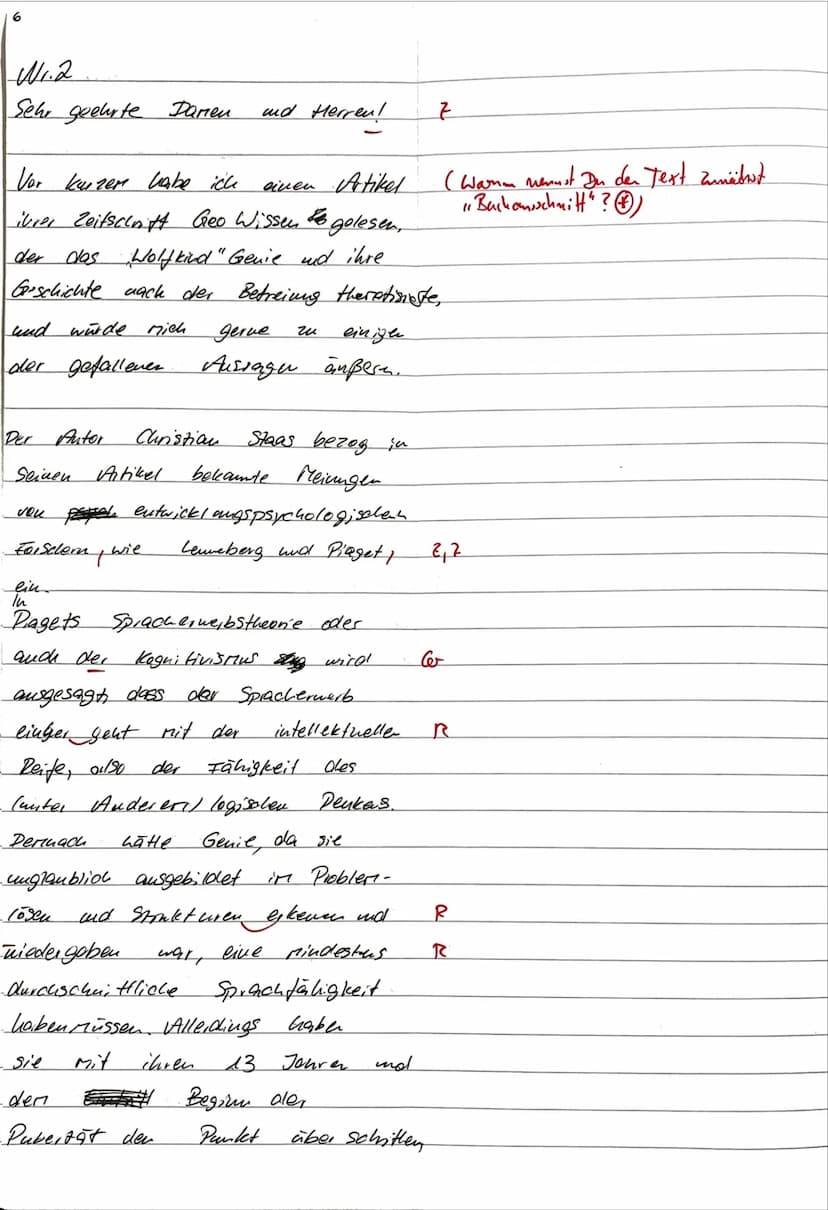 6
Nr. 2
Sehr geehrte Damen und Herren! Z
Vor kurzem habe ich einen Artikel (Warum nennst Du den Text zunächst
ihrer Zeitschrift Geo Wissen gelesen, „Buchausschnitt"? ⊛)
der das „Wolfkind" Genie und ihre
Geschichte nach der Befreiung thematisierte,
und würde mich gerne zu einigen
der gefallenen Aussagen äußern.
Der Autor Christian Staas bezog in
seinen Artikel bekannte Meinungen
von entwicklungspsychologischen
Forschern, wie Lenneberg und Piaget, Z, Z
ein.
In
Piagets Spracherwerbstheorie oder
auch der Kognitivismus wird Gr
ausgesagt, dass der Spracherwerb
einher geht mit der intellektuellen R
Reife, also der Fähigkeit des
(unter Anderem) logischen Denkens.
Demnach hätte Genie, da sie
unglaublich ausgebildet im Problem-
lösen und Strukturen erkennen und R
wiedergeben war, eine mindestens R
durchschnittliche Sprachfähigkeit
haben müssen. Allerdings haben
sie mit ihren 13 Jahren und
dem Beginn der
Pubertät den Punkt überschritten,